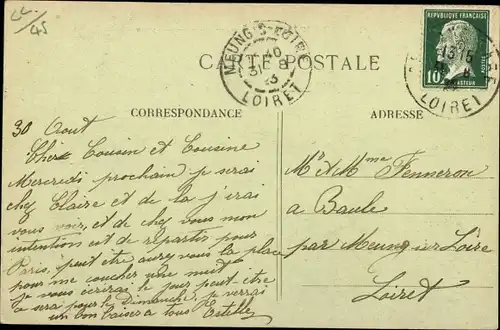 45
CARTE POSTALE
MEUNG-S-LOIRE
31 8
23
LOIRET
REPUBLIQUE FRANÇAISE
POSTES
10
PASTEUR
LOIRET
CORRESPONDANCE
ADRESSE
30 Aout
Cher Cousin et Cousine
Mercredi prochain je serai
chez Claire et de la j'irai
vous voir, et de chez vous mon
intention est de repartir pour
Paris, peut être aurez vous la place
pour me coucher une nuit
je vous écrirai le jour peut-être
ce sera pour le Dimanche, je verrai
un bon baiser a tous Estelle
Mr et Mme Fenneron
a Baule
par Meung sur Loire
Loiret